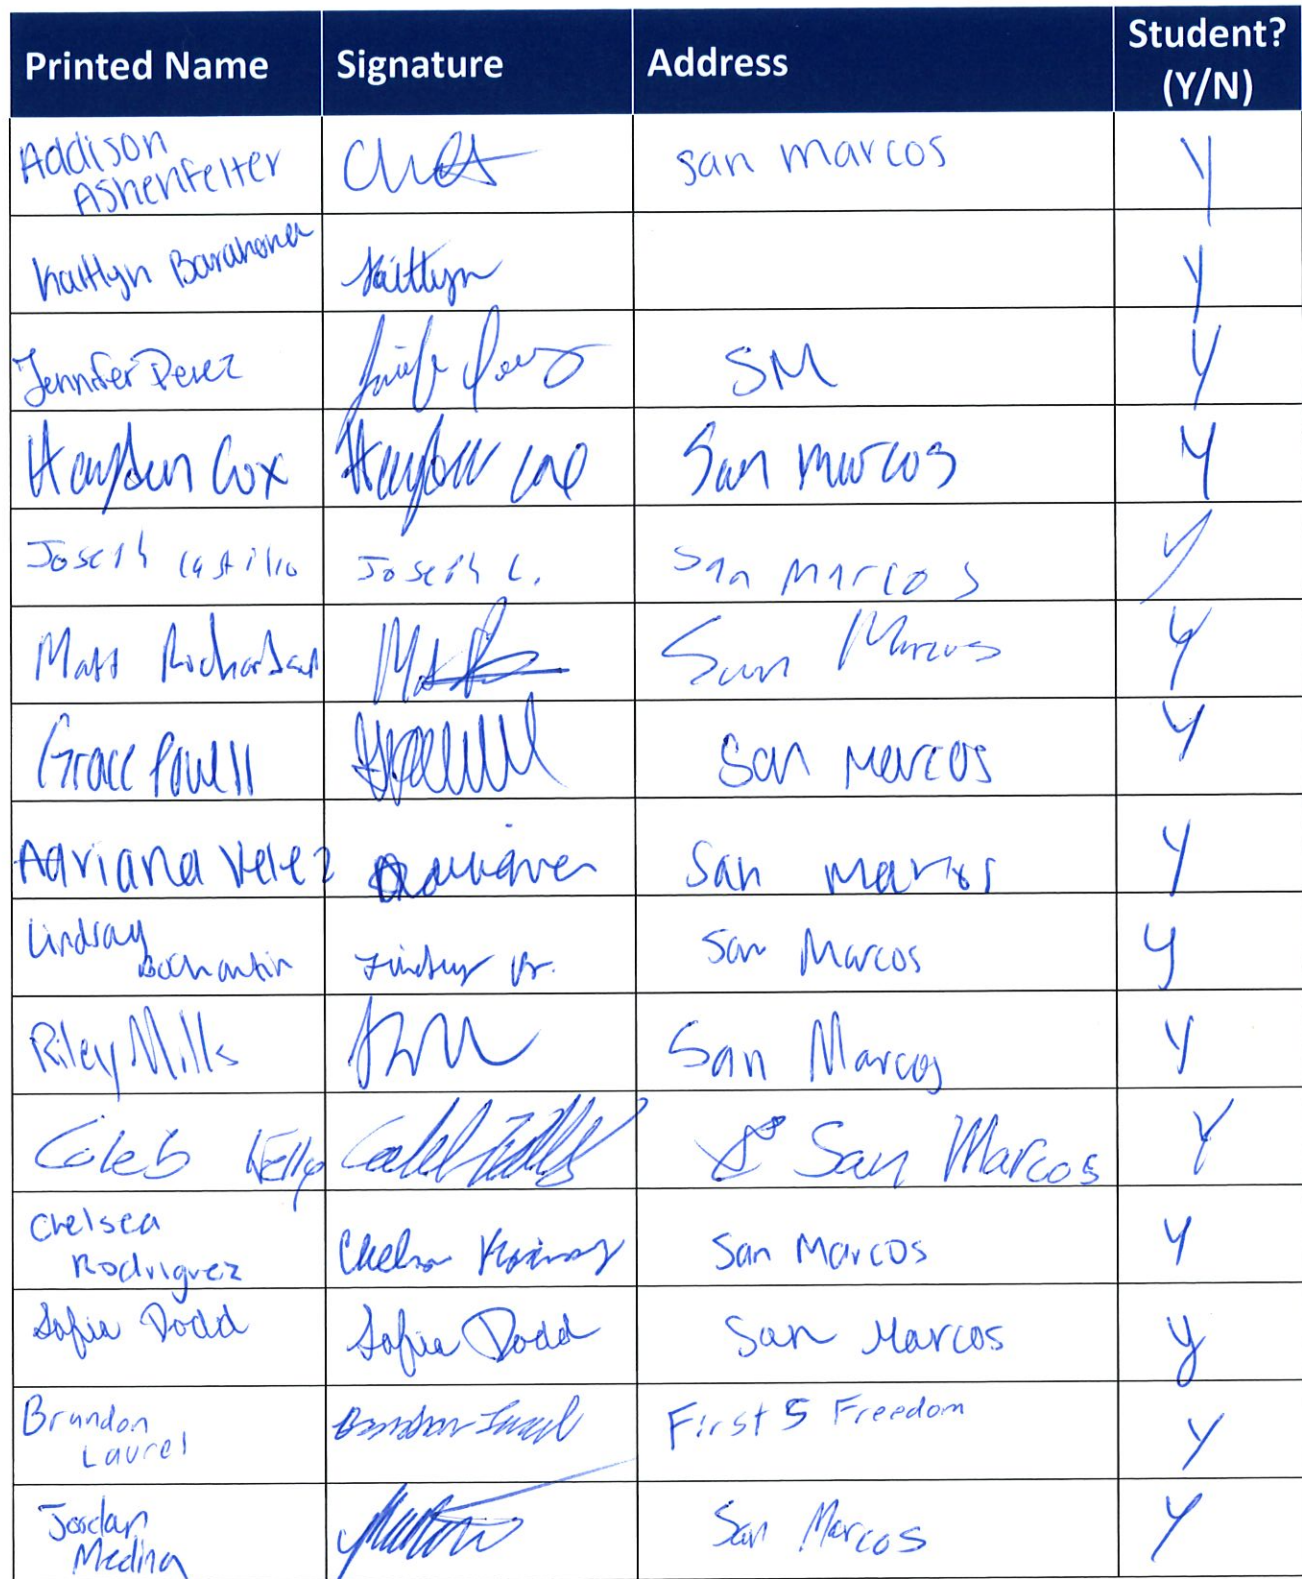 Printed Name Signature Address Student? (Y/N)
Addison Ashenfelter San Marcos Y
Kaitlyn Barahona Kaitlyn Y
Jennifer Perez SM Y
Hayden Cox Hayden San Marcos Y
Joseph Castillo Joseph C. San Marcos Y
Matt Richardson San Marcos Y
Grace Powell San Marcos Y
Adriana Velez San Marcos Y
Lindsay Bochantin Lindsay B. San Marcos Y
Riley Mills San Marcos Y
Caleb Kelly Caleb Kelly San Marcos Y
Chelsea Rodriguez Chelsea San Marcos Y
Sofia Dodd Sofia Dodd San Marcos y
Brandon Laurel Brandon Laurel First 5 Freedom Y
Jordan Medina San Marcos Y